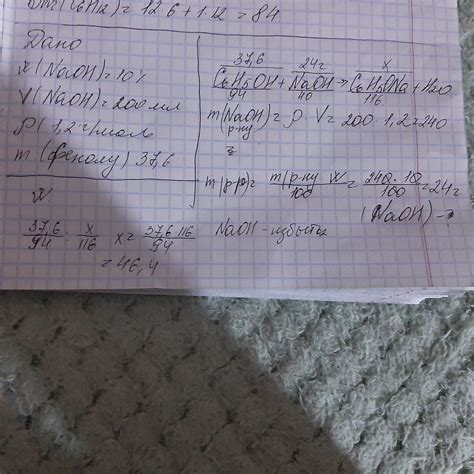 Dmr(C6H12) = 12·6+1·12 = 84
Дано
w(NaOH) = 10%
V(NaOH) = 200 мл
ρ( 1,2 г/моль
m (фенолу) 37,6
37,6 24г x
C6H5OH + NaOH → C6H5ONa + H2O
94 40 116
m(NaOH) = ρ · V = 200 · 1,2 = 240
р-ну
m(р-р) = m(р-ну · W / 100 = 240 · 10 / 100 = 24г
(NaOH) -
37,6 / 94 · x / 116 x = 37,6·116 / 94
= 46,4
NaOH - избыток